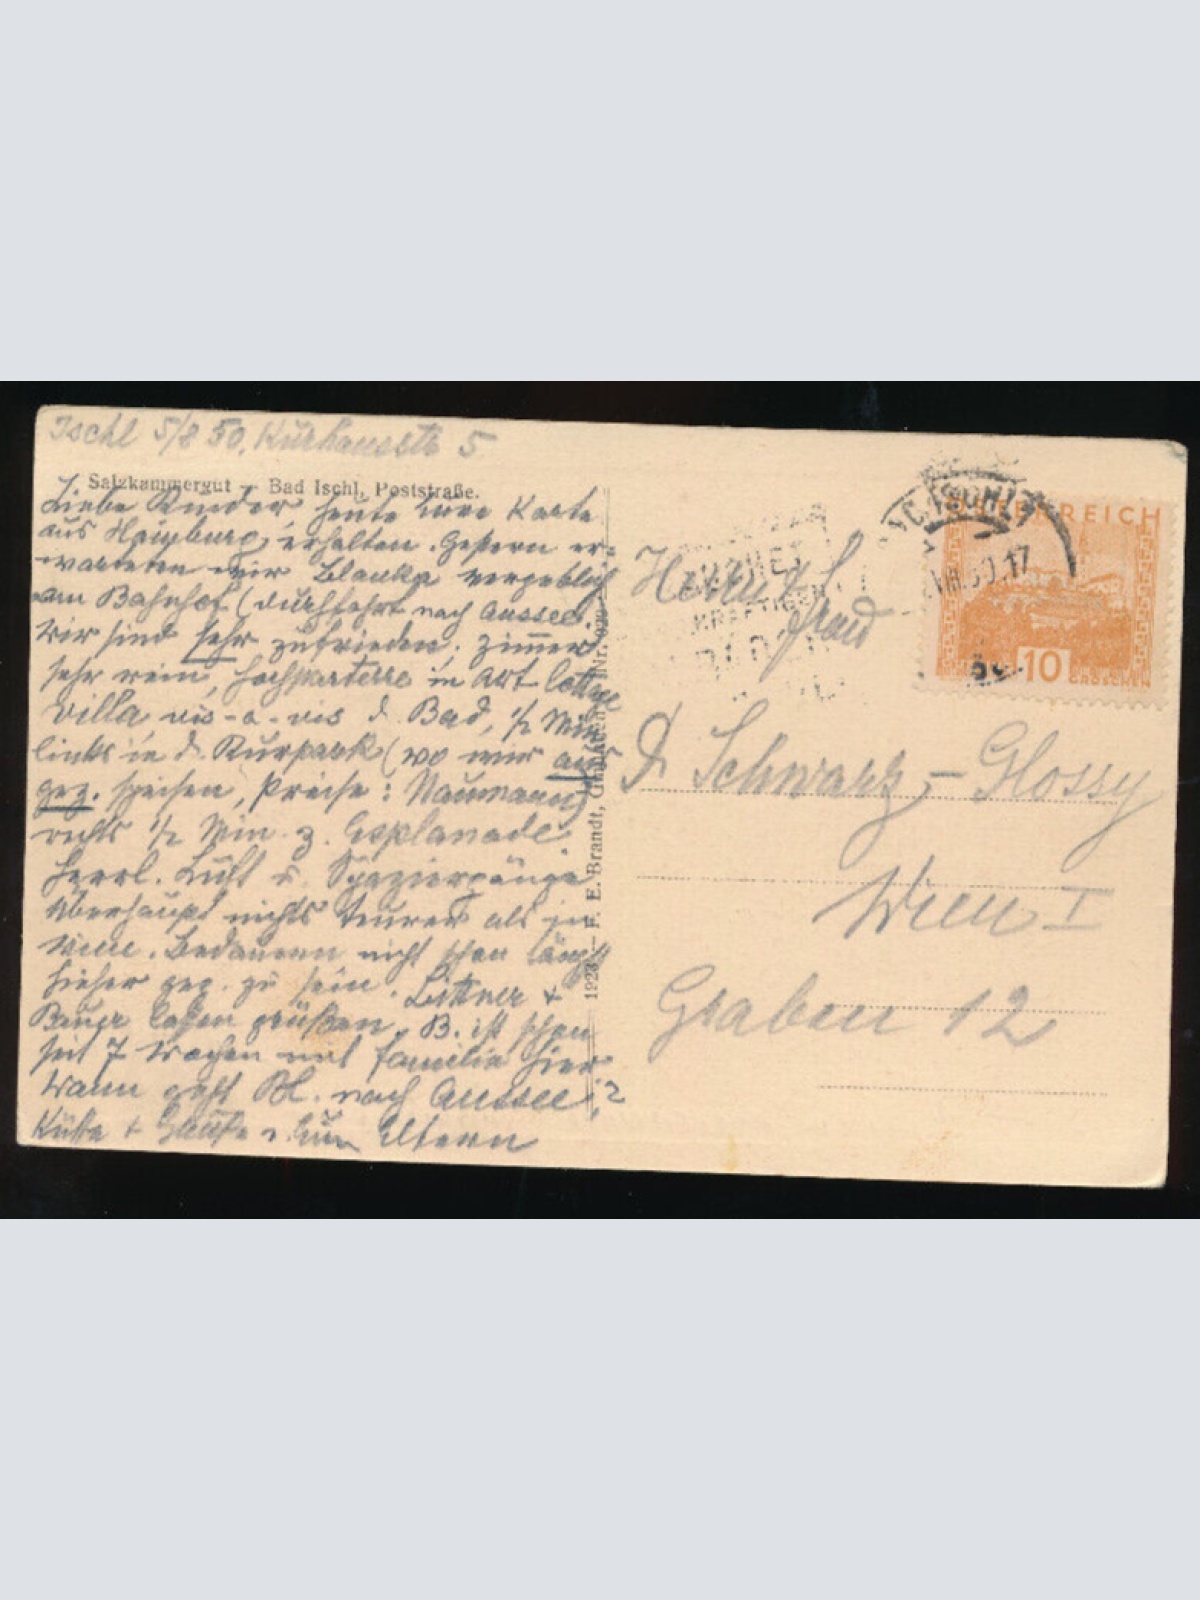 Ischl 5/8 30. Kurhausstr 5
Salzkammergut — Bad Ischl, Poststraße.
Liebe Kinder, heute eure Karte
aus Hainburg erhalten. Gestern er-
warteten wir Blanka vergeblich
am Bahnhof (Durchfahrt nach Aussee).
Wir sind sehr zufrieden. Zimmer
sehr rein, Hochparterre in Art Cottage
Villa vis-a-vis d. Bad, ½ Min
links in d. Kurpark (wo wir aus
gez. speisen, Preise: Naumann)
rechts ½ Min z. Esplanade.
Herrl. Luft u. Spaziergänge
Überhaupt nichts teurer als in
Wien. Bedauern nicht schon längst
hieher gez. zu sein. Littner +
Bauer lassen grüßen. B. ist schon
seit 7 Wochen mit Familie hier
Wann geht Bl. nach Aussee?
Küsse + Grüße v. Eltern
1928 — F. E. Brandt, Gmunden. Nr.
Herrn
Frau
Dr Schwarz-Glossy
Wien I
Graben 12
ÖSTERREICH
10
GROSCHEN
KRÄFTIGEN
VIII.30.17